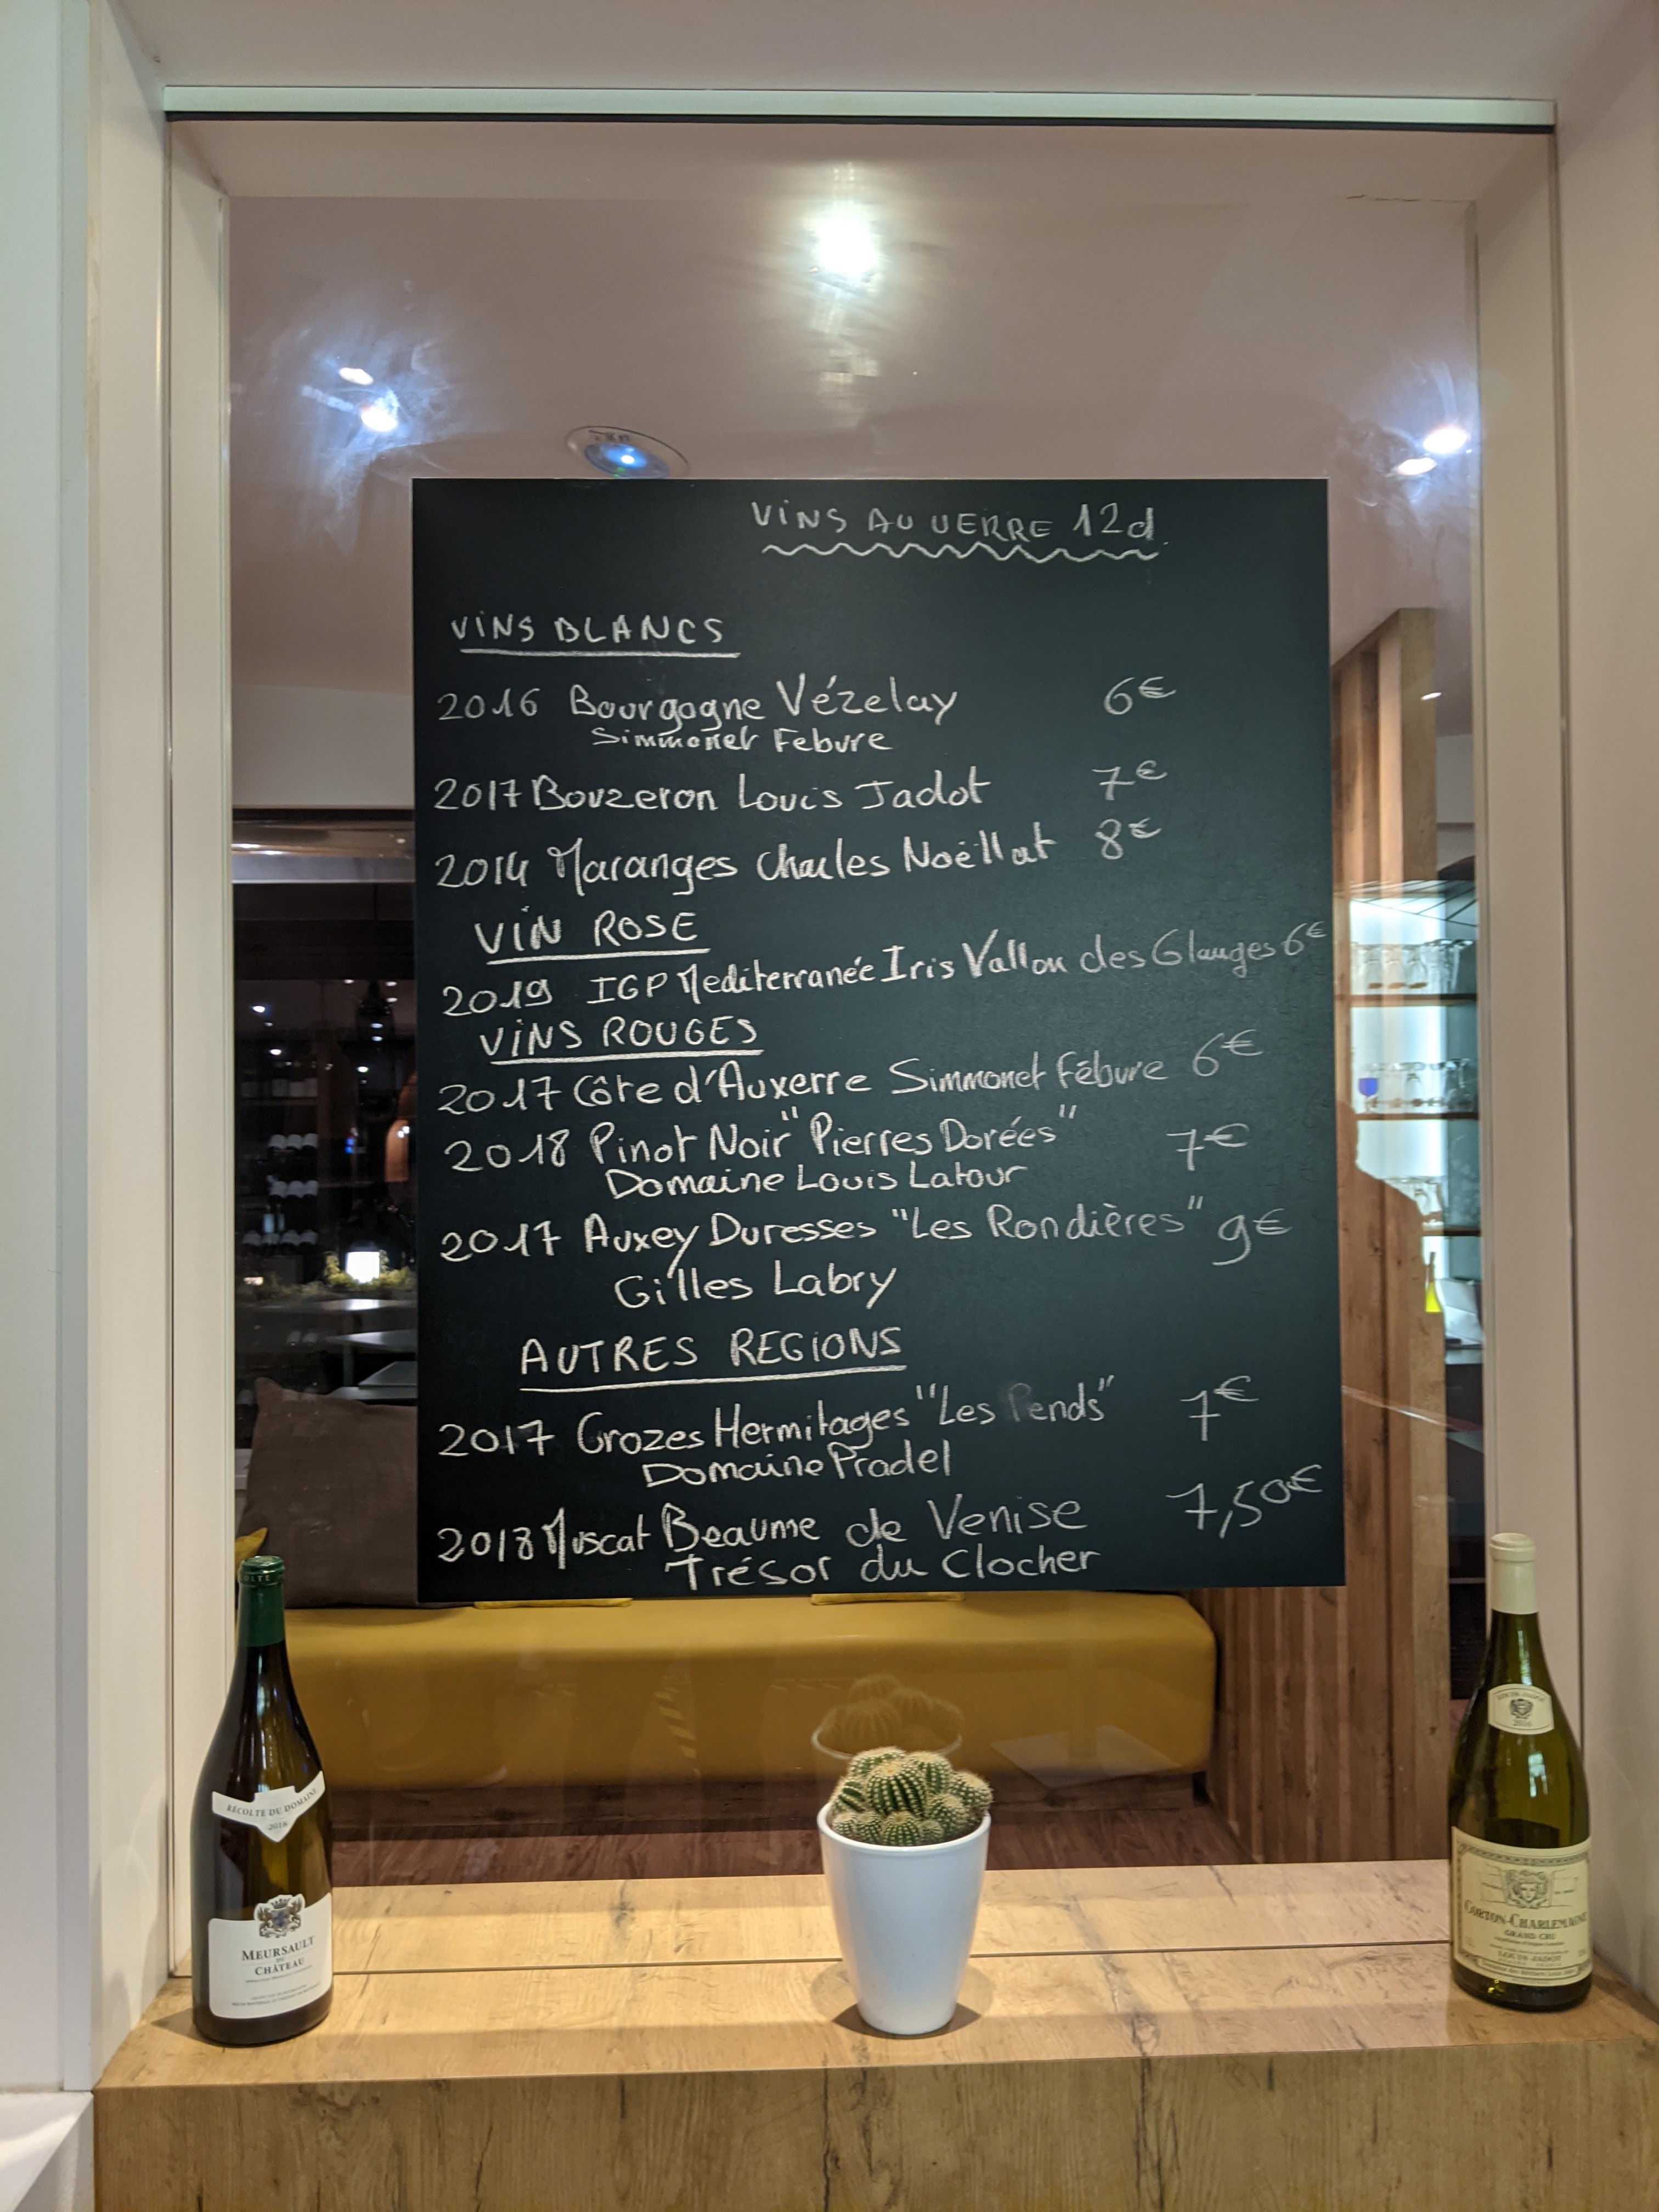 VINS AU VERRE 12cl.
VINS BLANCS
2016 Bourgogne Vézelay 6€
Simmonet Febvre
2017 Bouzeron Louis Jadot 7€
2014 Maranges Charles Noëllat 8€
VIN ROSE
2019 IGP Mediterranée Iris Vallon des Glauges 6€
VINS ROUGES
2017 Côte d'Auxerre Simmonet Fébvre 6€
2018 Pinot Noir "Pierres Dorées" 7€
Domaine Louis Latour
2017 Auxey Duresses "Les Rondières" 9€
Gilles Labry
AUTRES REGIONS
2017 Crozes Hermitages "Les Pends" 7€
Domaine Pradel
2018 Muscat Beaume de Venise 7,50€
Trésor du Clocher
RÉCOLTE DU DOMAINE
2016
MEURSAULT
DU
CHÂTEAU
LOUIS JADOT
2016
CORTON-CHARLEMAGNE
GRAND CRU
LOUIS JADOT